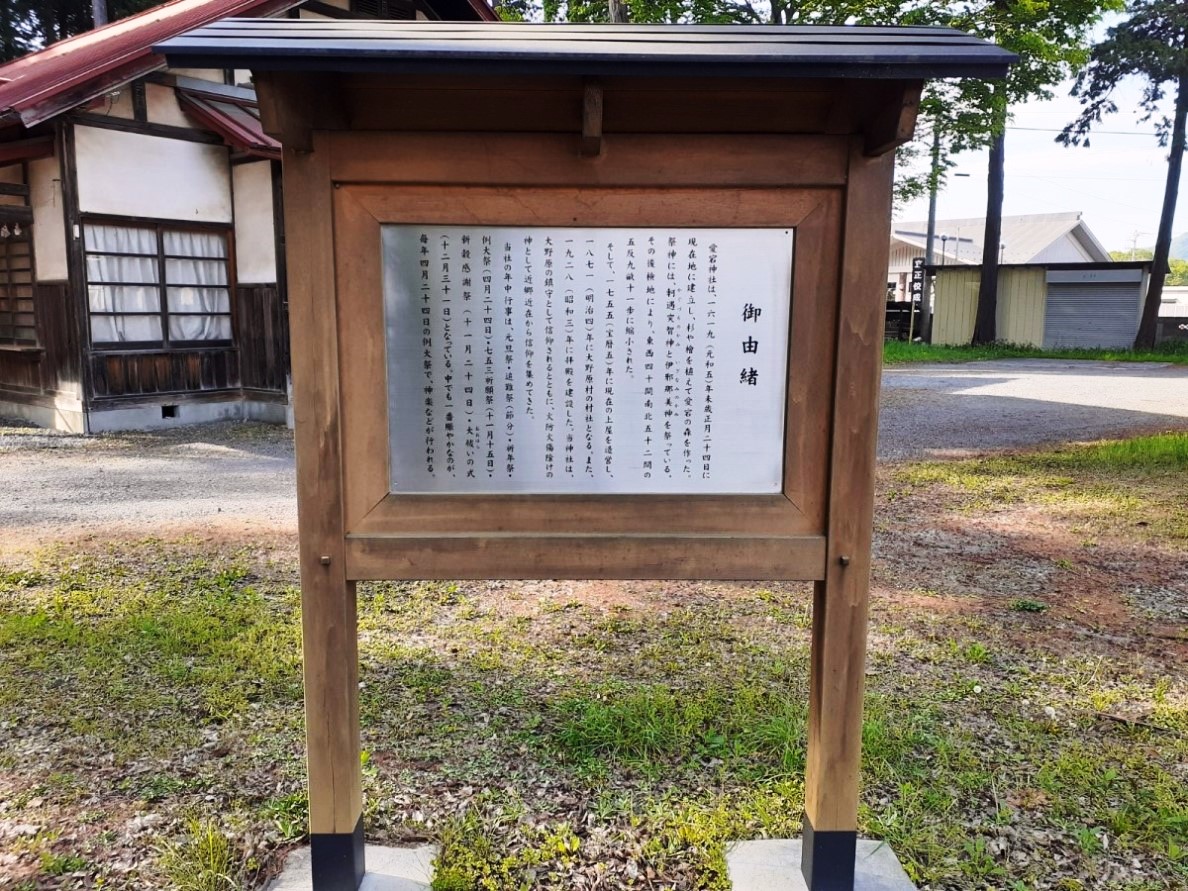 御由緒
愛宕神社は、一六一九(元和五)年未歳正月二十四日に
現在地に建立し、杉や檜を植えて愛宕の森を作った。
祭神には、軻遇突智神と伊邪那美神を祭っている。
その後検地により、東西四十間南北五十二間の
五反九畝十一歩に縮小された。
そして、一七五五(宝暦五)年に現在の上屋を造営し、
一八七一(明治四)年に大野原村の村社となる。また、
一九二八(昭和三)年に拝殿を建設した。当神社は、
大野原の鎮守として信仰されるとともに、火防火傷除けの
神として近郷近在から信仰を集めてきた。
当社の年中行事は、元旦祭・追難祭(節分)・祈年祭・
例大祭(四月二十四日)・七五三祈願祭(十一月十五日)・
新穀感謝祭(十一月二十四日)・大祓いの式
(十二月三十一日)となっている。中でも一番賑やかなのが、
毎年四月二十四日の例大祭で、神楽などが行われる。